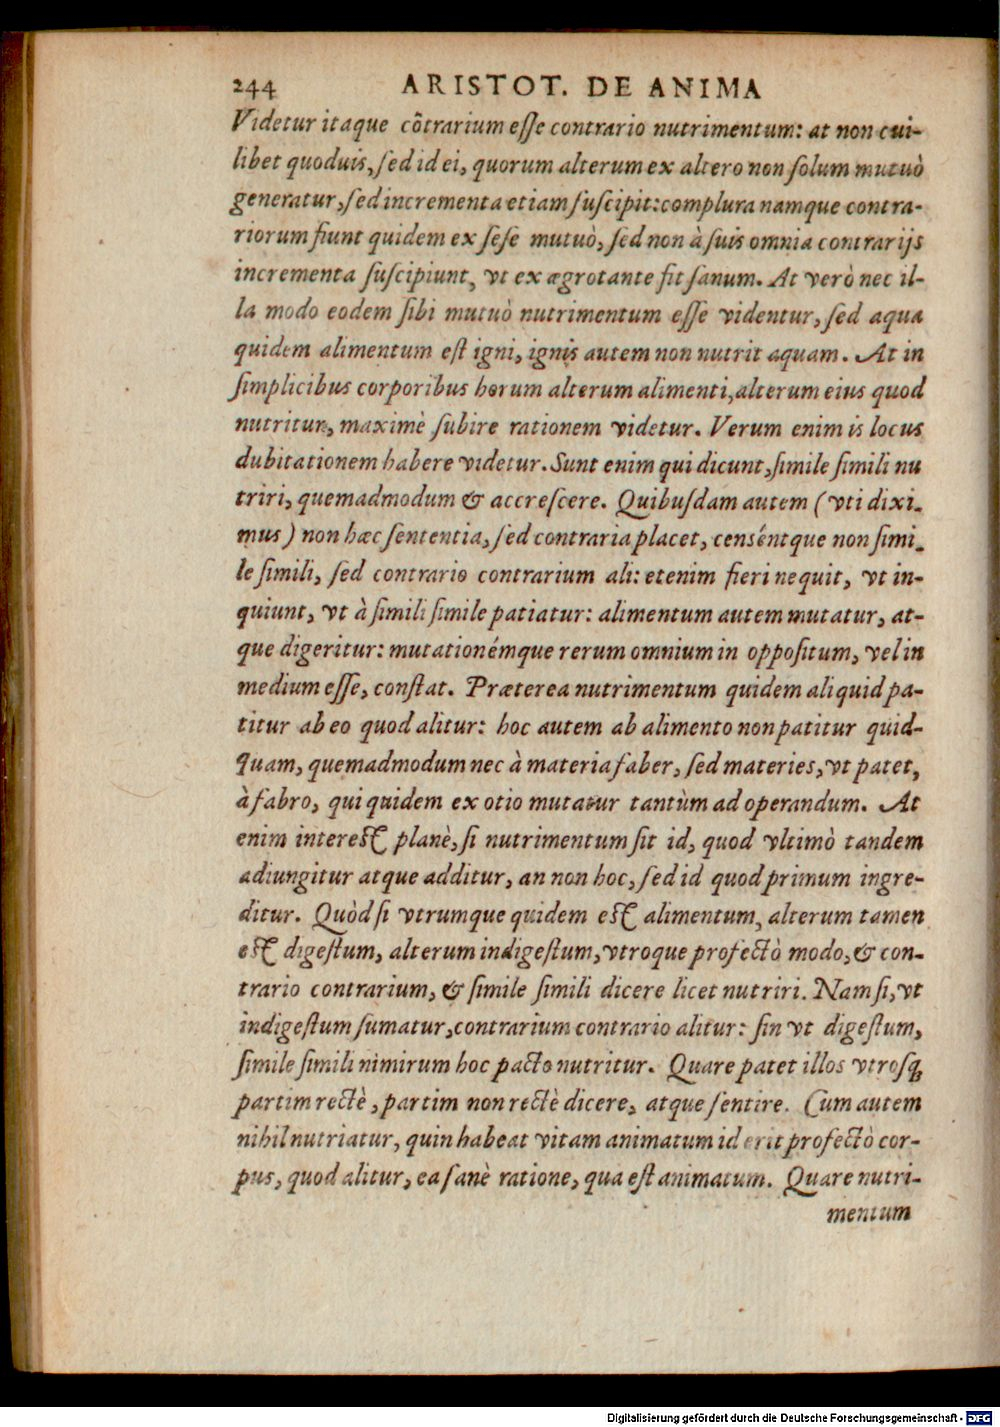 244 ARISTOT. DE ANIMA
Videtur itaque cõtrarium eſſe contrario nutrimentum: at non cui-
libet quoduis, ſed id ei, quorum alterum ex altero non ſolum mutuò
generatur, ſed incrementa etiam ſuſcipit: complura namque contra-
riorum fiunt quidem ex ſeſe mutuò, ſed non à ſuis omnia contrarijs
incrementa ſuſcipiunt, vt ex ægrotante fit ſanum. At verò nec il-
la modo eodem ſibi mutuò nutrimentum eſſe videntur, ſed aqua
quidem alimentum eſt igni, ignis autem non nutrit aquam. At in
ſimplicibus corporibus horum alterum alimenti, alterum eius quod
nutritur, maximè ſubire rationem videtur. Verum enim is locus
dubitationem habere videtur. Sunt enim qui dicunt, ſimile ſimili nu
triri, quemadmodum & accreſcere. Quibuſdam autem (vti dixi-
mus) non hæc ſententia, ſed contraria placet, censéntque non ſimi-
le ſimili, ſed contrario contrarium ali: etenim fieri nequit, vt in-
quiunt, vt à ſimili ſimile patiatur: alimentum autem mutatur, at-
que digeritur: mutationémque rerum omnium in oppoſitum, vel in
medium eſſe, conſtat. Præterea nutrimentum quidem aliquid pa-
titur ab eo quod alitur: hoc autem ab alimento non patitur quid-
quam, quemadmodum nec à materia faber, ſed materies, vt patet,
à fabro, qui quidem ex otio mutatur tantùm ad operandum. At
enim intereſt planè, ſi nutrimentum ſit id, quod vltimò tandem
adiungitur atque additur, an non hoc, ſed id quod primum ingre-
ditur. Quòd ſi vtrumque quidem eſt alimentum, alterum tamen
eſt digeſtum, alterum indigeſtum, vtroque profectò modo, & con-
trario contrarium, & ſimile ſimili dicere licet nutriri. Nam ſi, vt
indigeſtum ſumatur, contrarium contrario alitur: ſin vt digeſtum,
ſimile ſimili nimirum hoc pacto nutritur. Quare patet illos vtroſq;
partim rectè, partim non rectè dicere, atque ſentire. Cum autem
nihil nutriatur, quin habeat vitam animatum id erit profectò cor-
pus, quod alitur, ea ſanè ratione, qua eſt animatum. Quare nutri-
mentum
Digitalisierung gefördert durch die Deutsche Forschungsgemeinschaft - DFG